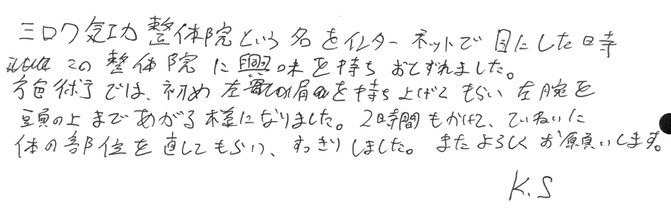 ミロク気功整体院という名をインターネットで目にした時
この整体院に興味を持ちおとずれました。
施術では、初め左の肩を持ち上げてもらい左腕を
頭の上まであがる様になりました。2時間もかけて、ていねいに
体の部位を直してもらい、すっきりしました。またよろしくお願いします。
K.S